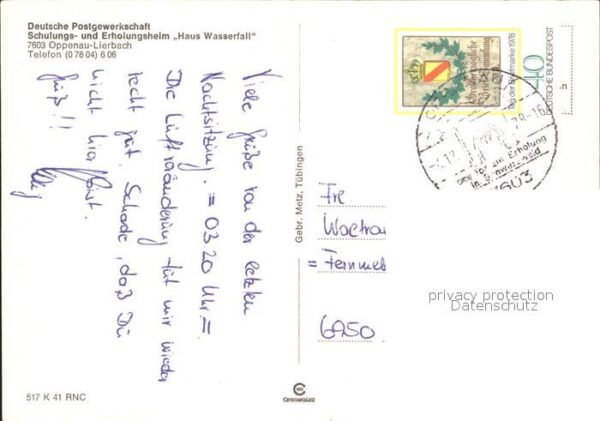 Deutsche Postgewerkschaft
Schulungs- und Erholungsheim „Haus Wasserfall"
7603 Oppenau-Lierbach
Telefon (0 78 04) 6 06
Viele Grüße von der letzten
Nachtsitzung. = 03 20 Uhr =.
Die Luftveränderung tut mir wieder
recht gut. Schade, daß Du
nicht hier
Grüß!!
Gebr. Metz, Tübingen
40
DEUTSCHE BUNDESPOST
Tag der Briefmarke 1978
OPPENAU
-16
Ort für Erholung
7603
= Fernmel
6950
privacy protection
Datenschutz
517 K 41 RNC